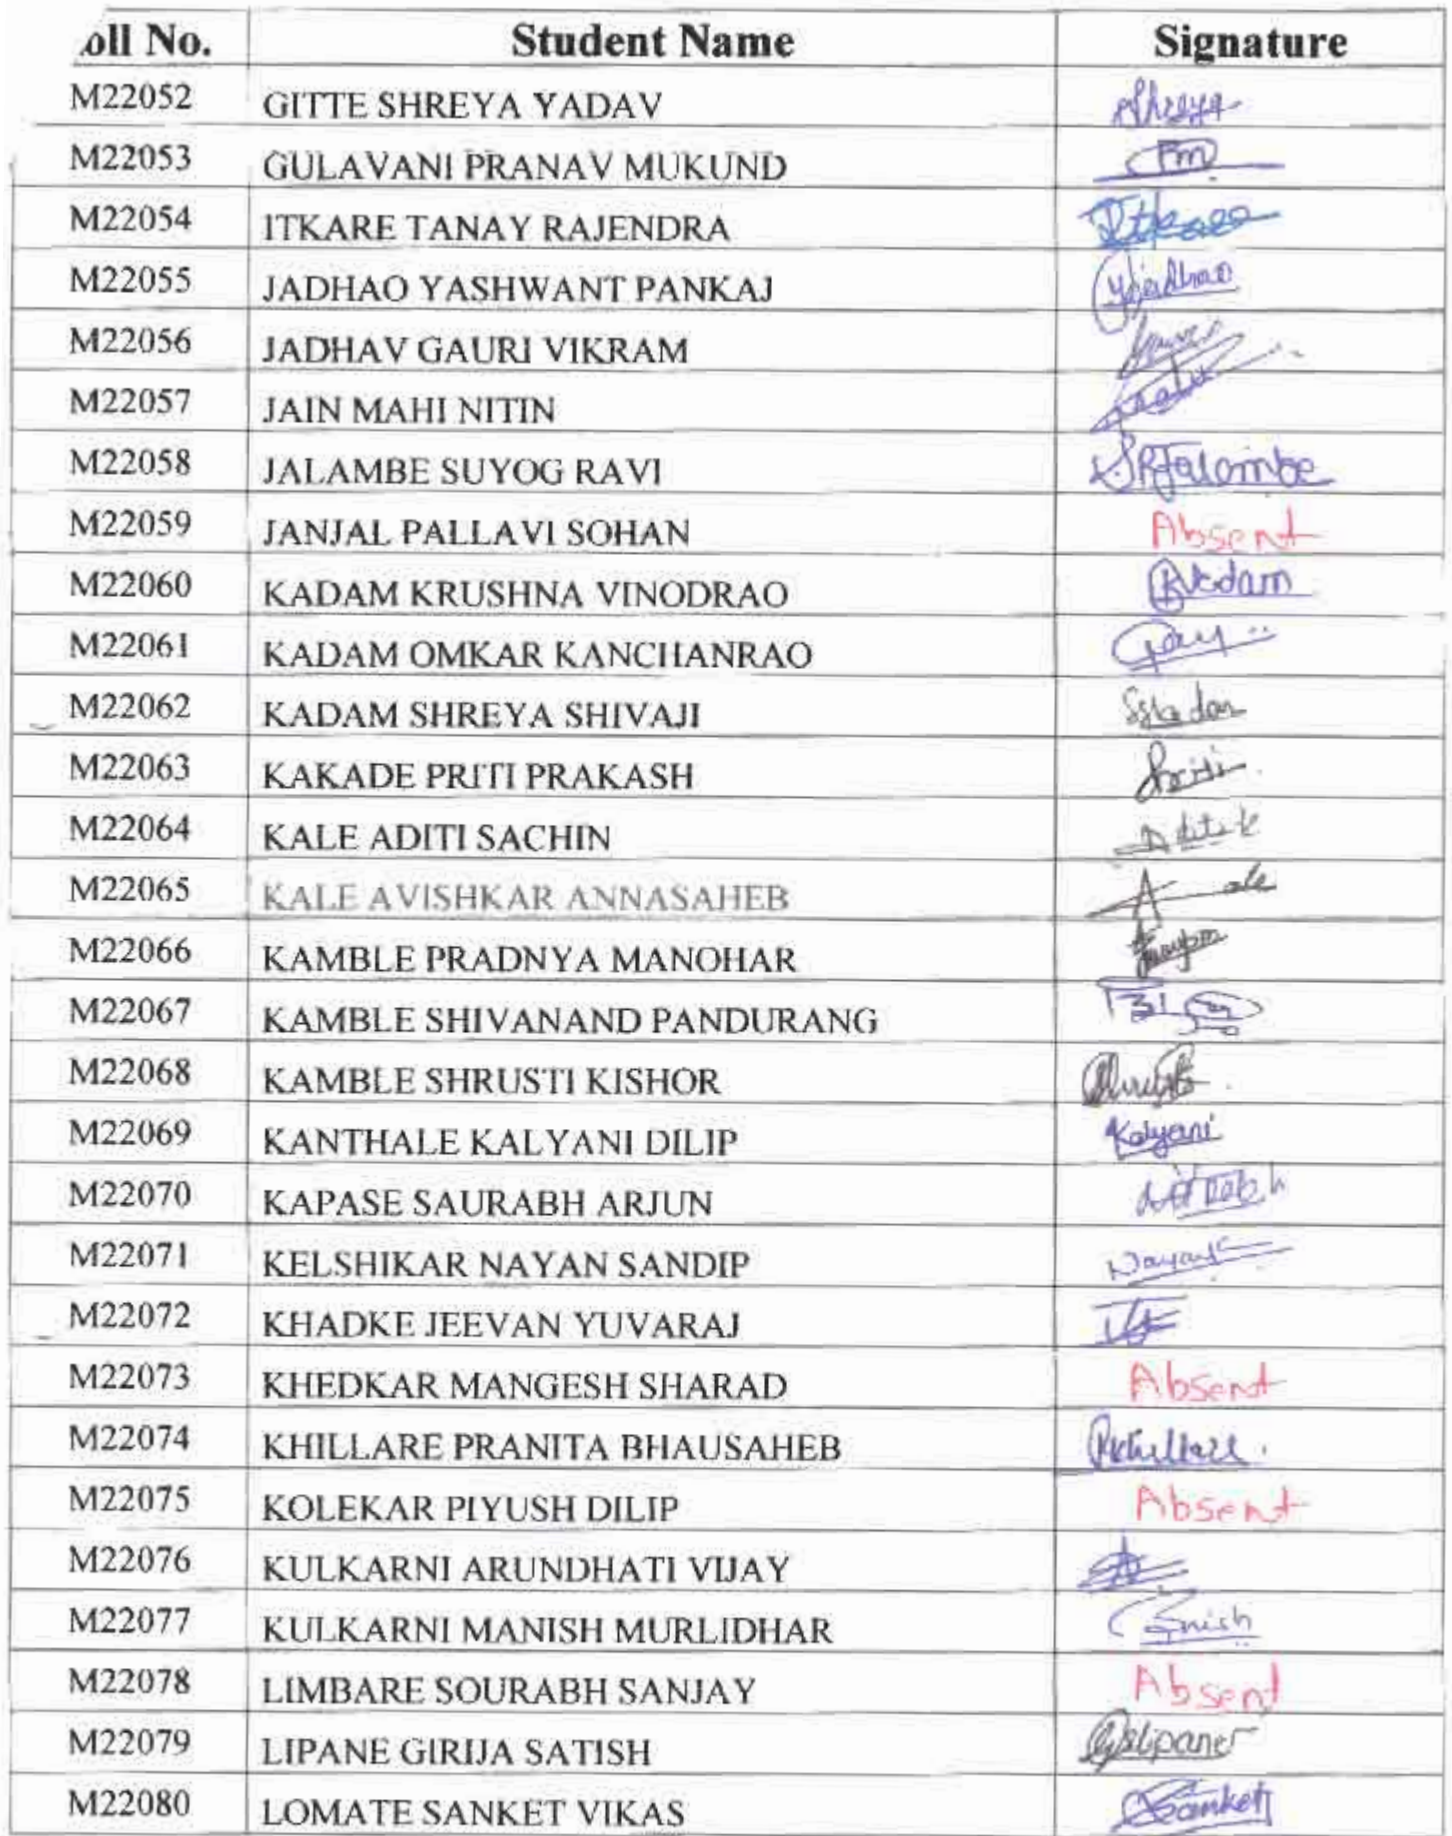 oll No. Student Name Signature
M22052 GITTE SHREYA YADAV Shreya
M22053 GULAVANI PRANAV MUKUND Pm
M22054 ITKARE TANAY RAJENDRA Itkare
M22055 JADHAO YASHWANT PANKAJ Yjadhao
M22056 JADHAV GAURI VIKRAM
M22057 JAIN MAHI NITIN
M22058 JALAMBE SUYOG RAVI SRJalambe
M22059 JANJAL PALLAVI SOHAN Absent
M22060 KADAM KRUSHNA VINODRAO
M22061 KADAM OMKAR KANCHANRAO
M22062 KADAM SHREYA SHIVAJI
M22063 KAKADE PRITI PRAKASH Priti
M22064 KALE ADITI SACHIN
M22065 KALE AVISHKAR ANNASAHEB
M22066 KAMBLE PRADNYA MANOHAR
M22067 KAMBLE SHIVANAND PANDURANG
M22068 KAMBLE SHRUSTI KISHOR
M22069 KANTHALE KALYANI DILIP Kalyani
M22070 KAPASE SAURABH ARJUN
M22071 KELSHIKAR NAYAN SANDIP
M22072 KHADKE JEEVAN YUVARAJ
M22073 KHEDKAR MANGESH SHARAD Absent
M22074 KHILLARE PRANITA BHAUSAHEB Pkhillare
M22075 KOLEKAR PIYUSH DILIP Absent
M22076 KULKARNI ARUNDHATI VIJAY
M22077 KULKARNI MANISH MURLIDHAR
M22078 LIMBARE SOURABH SANJAY Absent
M22079 LIPANE GIRIJA SATISH
M22080 LOMATE SANKET VIKAS Sanket